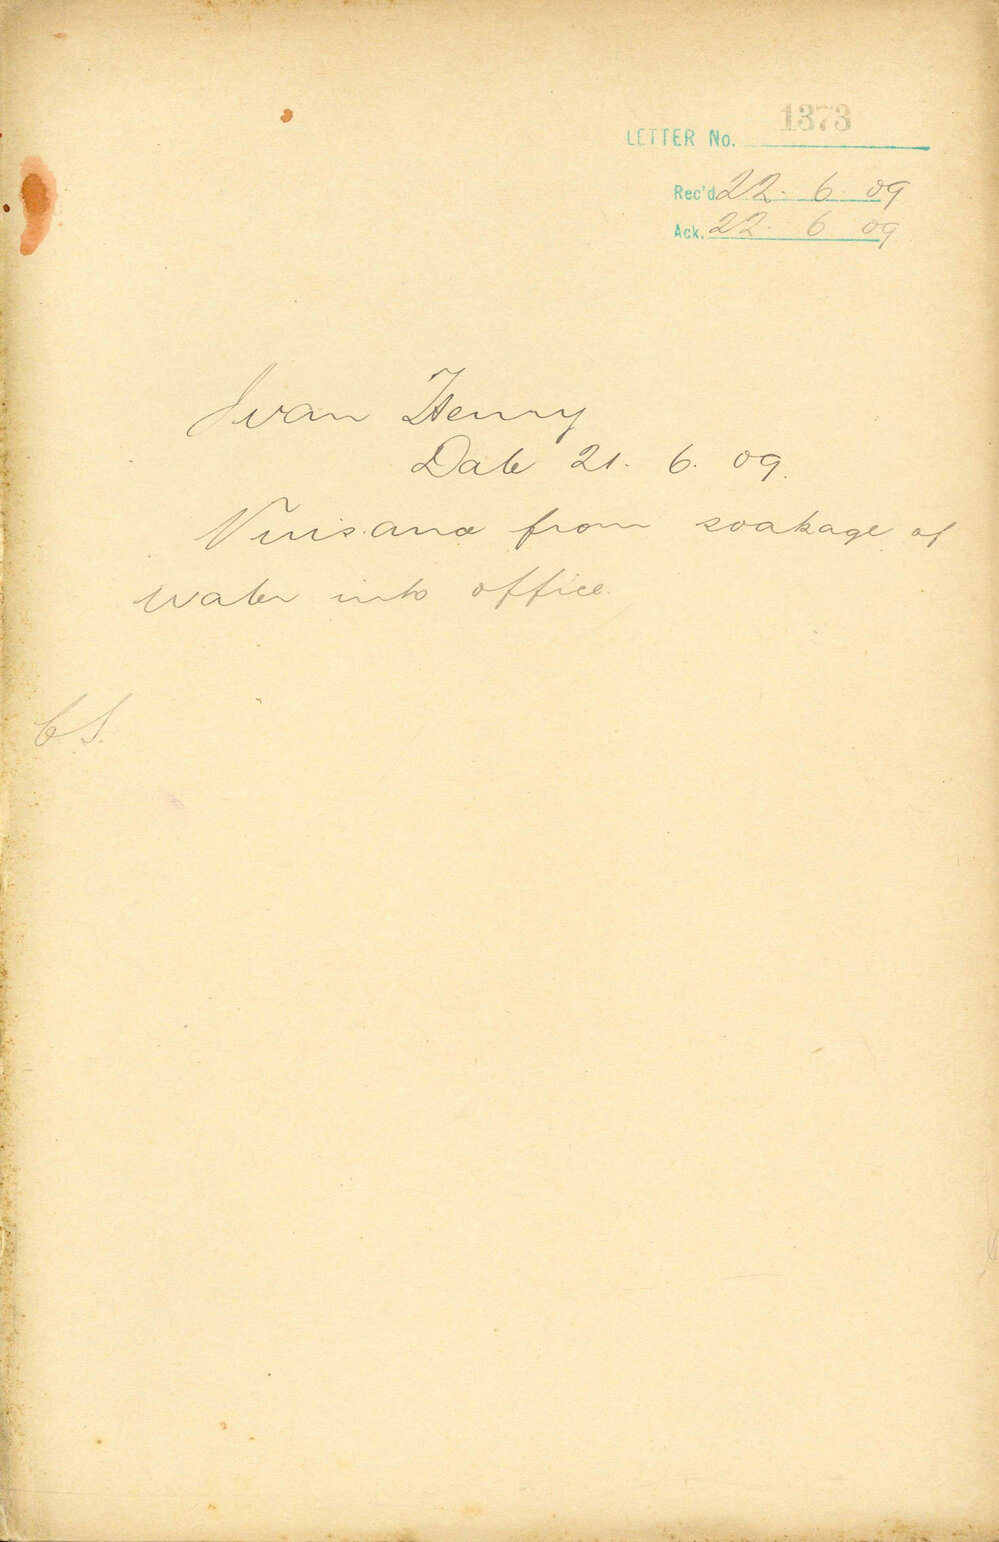 LETTER No. 1373
Rec'd 22. 6. 09
Ack. 22. 6 09
Ivan Henry
Date 21. 6. 09.
from soakage of
water into office.
C.S.